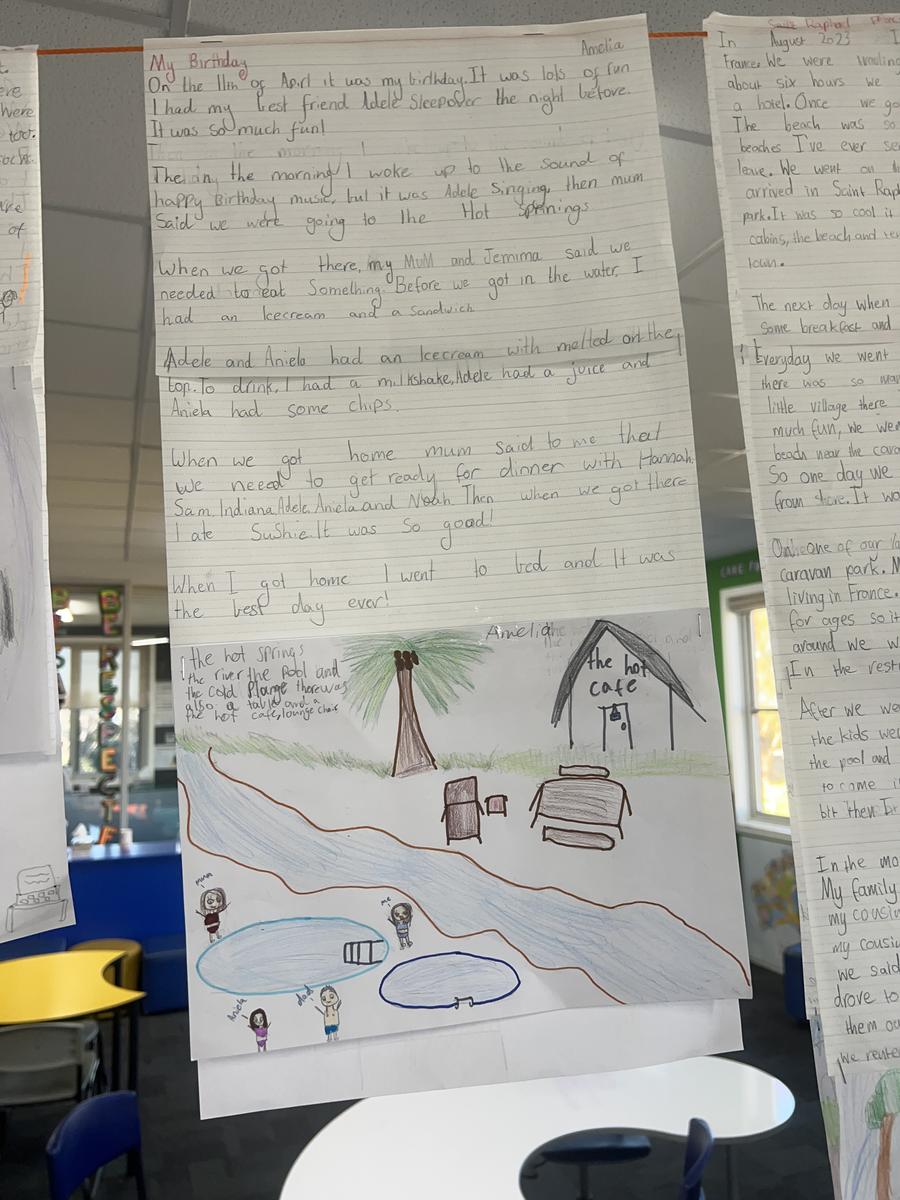 My Birthday
Amelia
On the 11th of April it was my birthday. It was lots of fun
I had my best friend Adele Sleepover the night before.
It was so much fun!
in the morning I woke up to the sound of
happy Birthday music, but it was Adele Singing, then mum
Said we were going to the Hot Springs
When we got there, my MuM and Jemima said we
needed to eat Something. Before we got in the water, I
had an Icecream and a sandwich
Adele and Aniela had an Icecream with melted on the
top. To drink, I had a milkshake, Adele had a juice and
Aniela had some chips.
When we got home mum said to me that
we need to get ready for dinner with Hannah,
Sam, Indiana, Adele, Aniela and Noah. Then when we got there
I ate Sushie. It was so good!
When I got home I went to bed and It was
the best day ever!
Amelia
the hot springs
the river the pool and
the cold Plange there was
also a table and a
the hot cafe, lounge chair
the hot
cafe
mum
me
dad
Aniela
ere
were
too.
of
Saint Raphael
In August 2023 I
France. We were
about six hours we
a hotel. Once we go
The beach was so
beaches I've ever se
leave. We went on
arrived in Saint Rap
park. It was so cool it
cabins, the beach and
town.
The next day when
Some breakfast and
Everyday we went
there was so
little village there
much fun, we we
beach near the cara
So one day we
from shore. It wa
one of our
caravan park. M
living in France.
for ages so it
around we w
In the rest
After we we
the kids we
the pool and
to come i
bit then
In the mo
My family
my cousin
my cousi
we said
drove to
them ou
we rente
BE
RESPECTF
CARE FO